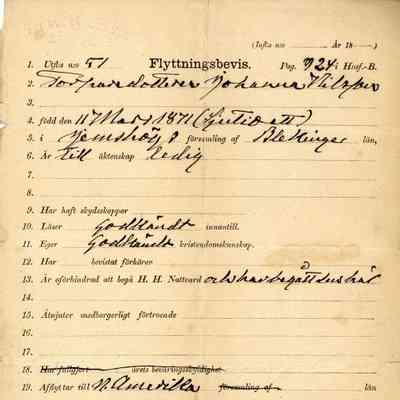 (Insta no ——— År 18———)
1. Utsta no 51 Flyttningsbevis. Pag. 724 i Husf.-B.
2. Johanna Nilsson
3.
4. född den 11 Mars 1871 (sjutioett)
5. i Jemshög församling af Blekinge län,
6. Är till äktenskap Ledig
7.
8.
9. Har haft skyddskoppor
10. Läser Godkändt innantill.
11. Eger Godkändt kristendomskunskap.
12. Har bevistat förhören
13. Är oförhindrad att begå H. H. Nattvard och har begått
14.
15. Åtnjuter medborgerligt förtroende
16.
17.
18. Har fullgjort årets beväringsskyldighet.
19. Afflyttar till N. Amerika församling af län